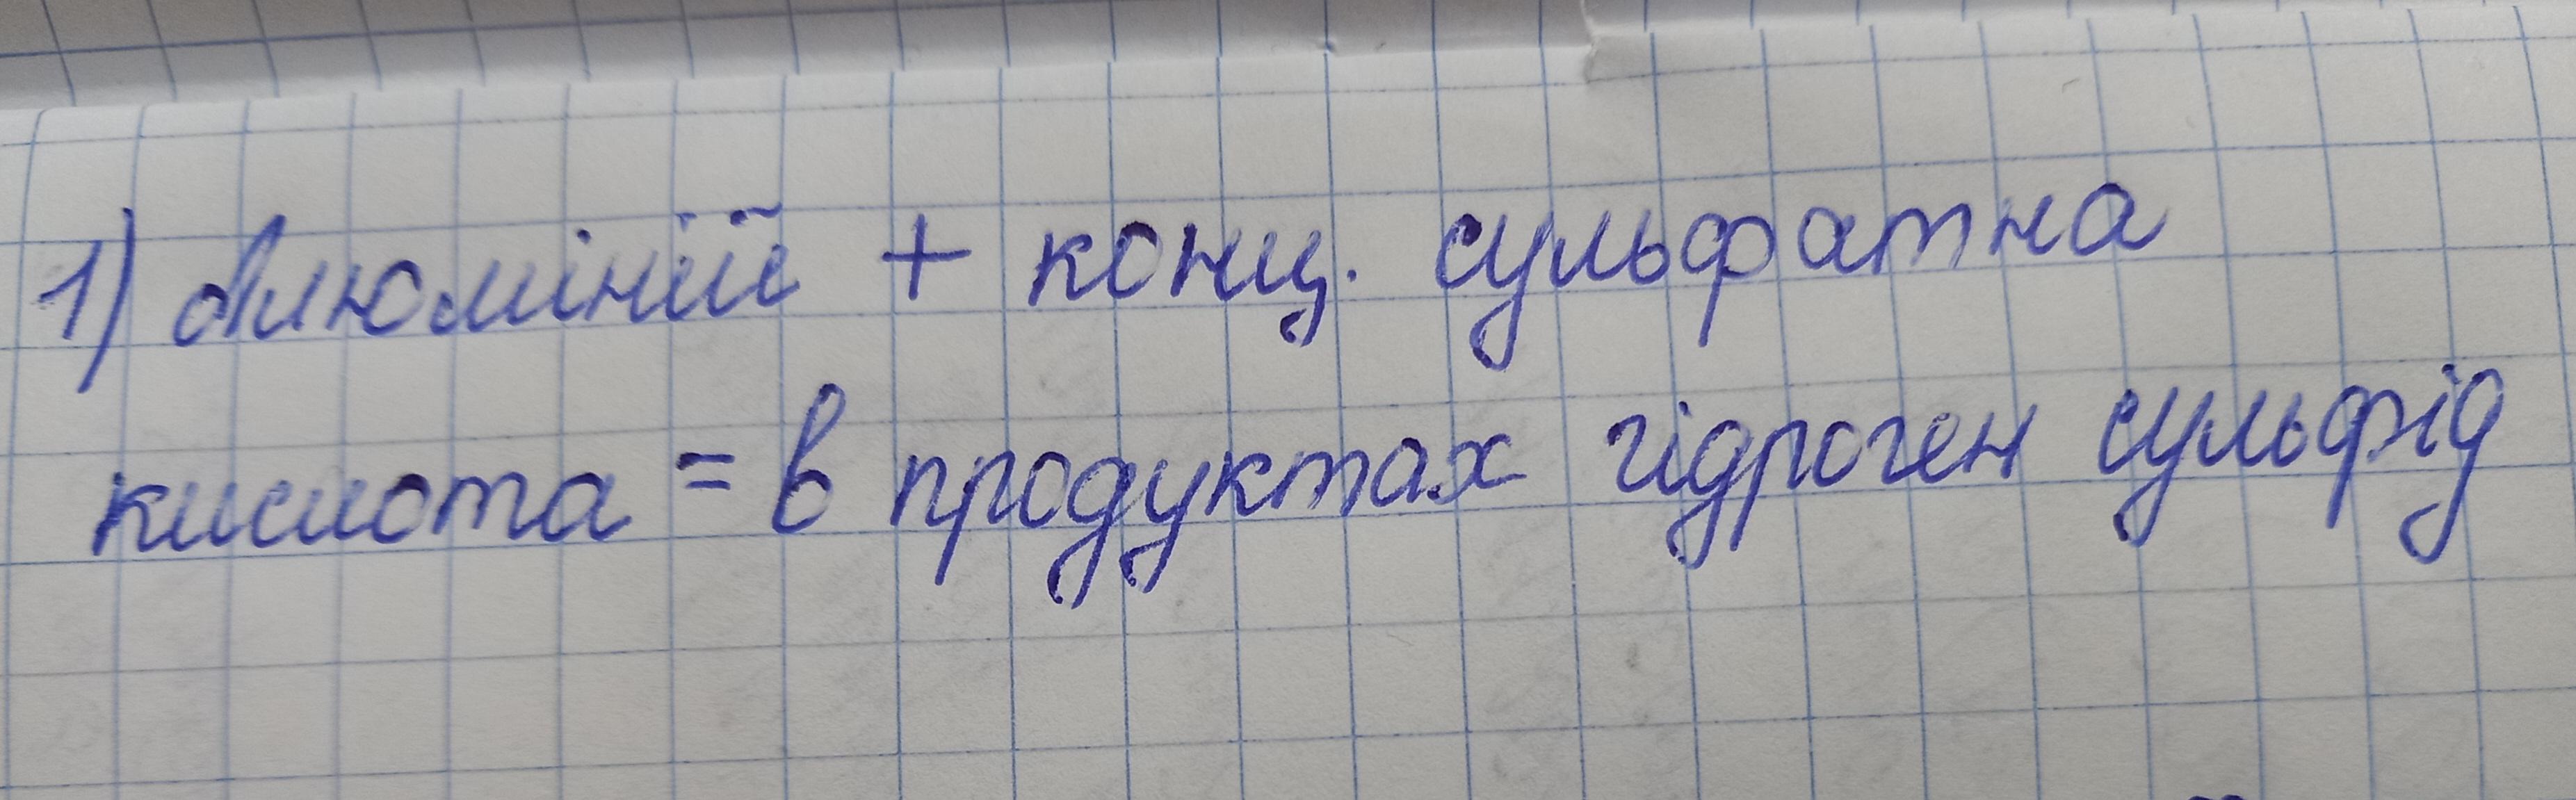 1) Алюміній + конц. сульфатна
кислота = в продуктах гідроген сульфід